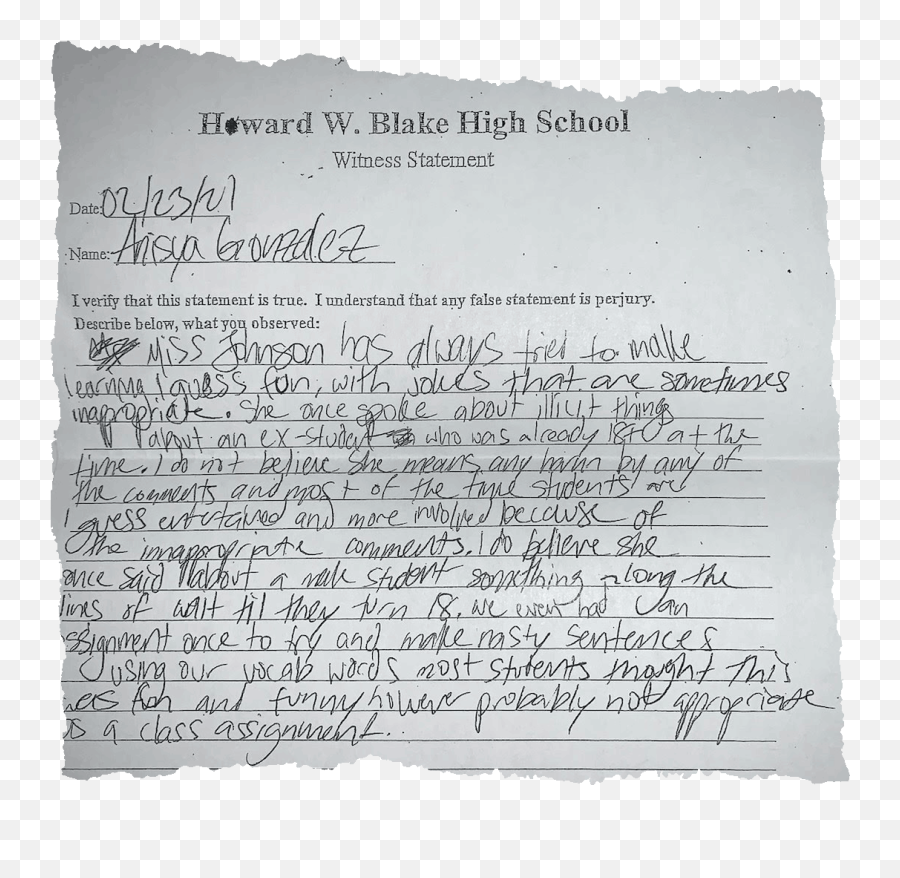 Howard W. Blake High School
Witness Statement
Date: 02/23/21
Name: Anisya Gonzalez
I verify that this statement is true. I understand that any false statement is perjury.
Describe below, what you observed:
Miss Johnson has always tried to make
learning I guess fun, with jokes that are sometimes
inappropriate. She once spoke about illicit things
about an ex-student who was already 18+ at the
time. I do not believe she means any harm by any of
the comments and most of the time students are
I guess entertained and more involved because of
the innappropriate comments. I do believe she
once said about a male student something along the
lines of wait til they turn 18. we even had an
ssignment once to try and make nasty sentences
using our vocab words most students thought this
was fun and funny however probably not appropriate
as a class assignment.